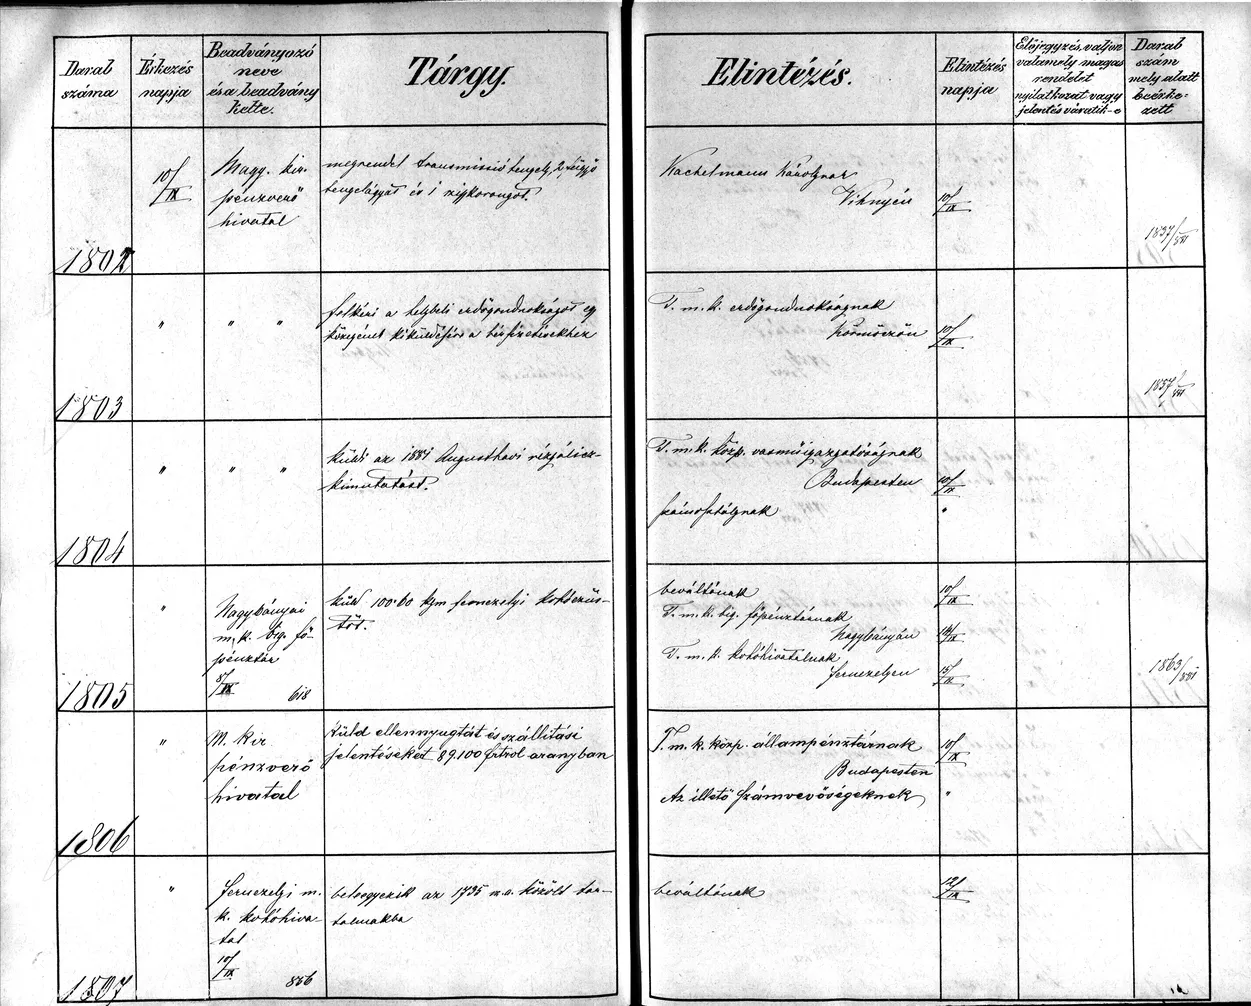 Darab száma
Érkezés napja
Beadványozó neve és a beadvány kelte.
Tárgy.
Elintézés.
Elintézés napja
Előjegyzés, valjon valamely magas rendelet nyilatkozat vagy jelentés váratik-e
Darab szám mely alatt beérkezett
1802
10/IX
Magy. kir. pénzverő hivatal
megrendel transmissió tengely, 2
tengelyágyat és 1 szijkorongot.
Wachtelmann Károlynak
Vihnyén
10/IX
1837/881
1803
" " "
felkéri a helybeli erdőgondnokságot egy
közegének kiküldésére a bérfizetésekhez
T. m. k. erdőgondnokságnak
Körmöczön
10/IX
1857/881
1804
" " "
küldi az 1881 Augusthavi rézgálicz-
kimutatást.
T. m. k. közp. vasműigazgatóságnak
Budapesten
10/IX
számosztálynak
"
1805
"
Nagybányai
m. k. big. fő-
pénztár
8/IX 618
küld 100·00 kgm fernezelyi kohóezüs-
töt.
beváltónak
10/IX
T. m. k. big. főpénztárnak
Nagybányán
T. m. k. kohóhivatalnak
fernezelyen
15/IX
1863/881
1806
"
M. kir
pénzverő
hivatal
küld ellennyugtát és szállitási
jelentéseket 89.100 frtról aranyban
T. m. k. közp. állampénztárnak
Budapesten
10/IX
Az illető számvevőségeknek
"
1807
"
fernezelyi m.
k. kohóhiva-
tal
10/IX 856
beleegyezik az 1735 sz. a. közölt tar-
talmakba
beváltónak
12/IX